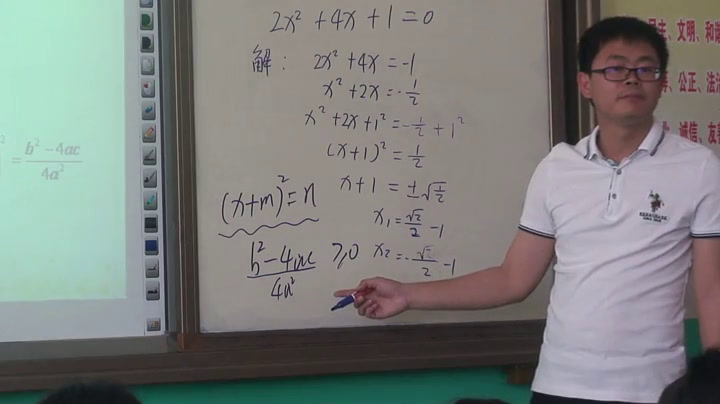 2x² + 4x + 1 = 0
解： 2x² + 4x = -1
x² + 2x = -1/2
x² + 2x + 1² = -1/2 + 1²
(x+1)² = 1/2
x + 1 = ±√(1/2)
x₁ = √2/2 - 1
x₂ = -√2/2 - 1
(x+m)² = n
(b² - 4ac)/4a² ≥ 0
² = (b² - 4ac)/4a²
文明、和谐
公正、法治
诚信、友善